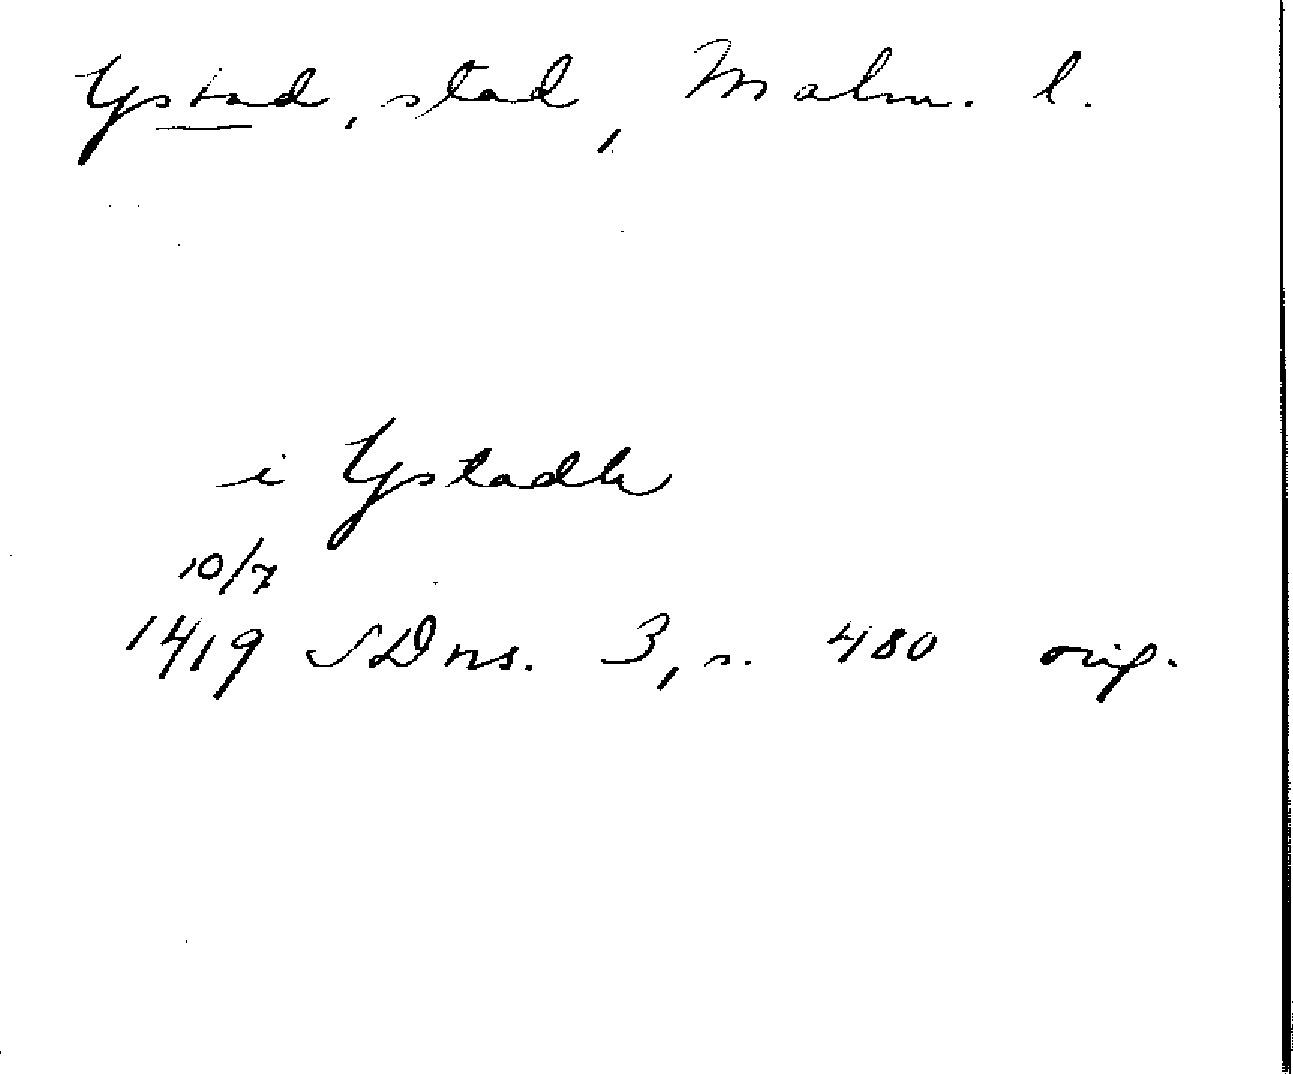 Ystad, stad, Malm. l.
i Ystadh
10/7
1419 SDns. 3, s. 480 orig.